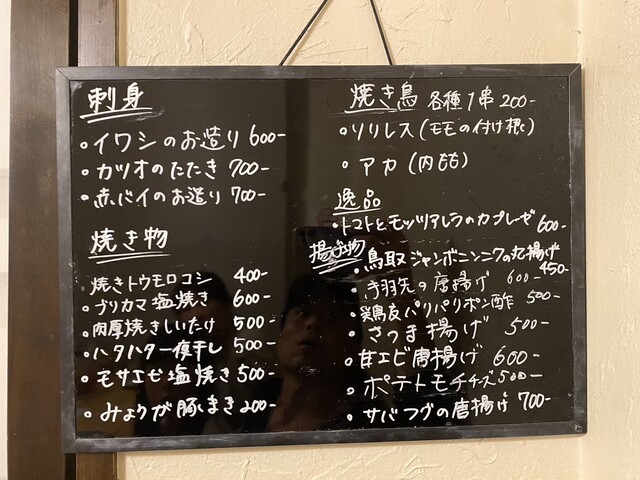 刺身
・イワシのお造り 600-
・カツオのたたき 700-
・赤バイのお造り 700-
焼き物
・焼きトウモロコシ 400-
・ブリカマ塩焼き 600-
・肉厚焼きしいたけ 500-
・ハタハタ一夜干し 500-
・モサエビ塩焼き 500-
・みょうが豚まき 200-
焼き鳥 各種1串200-
・ソリレス(モモの付け根)
・アカ(内もも)
逸品
・トマトとモッツァレラのカプレーゼ 600-
揚げ物
・鳥取ジャンボニンニクの丸揚げ 450-
・手羽先の唐揚げ 600-
・鶏皮パリパリポン酢 500-
・さつま揚げ 500-
・甘エビ唐揚げ 600-
・ポテトモチチーズ 500-
・サバフグの唐揚げ 700-